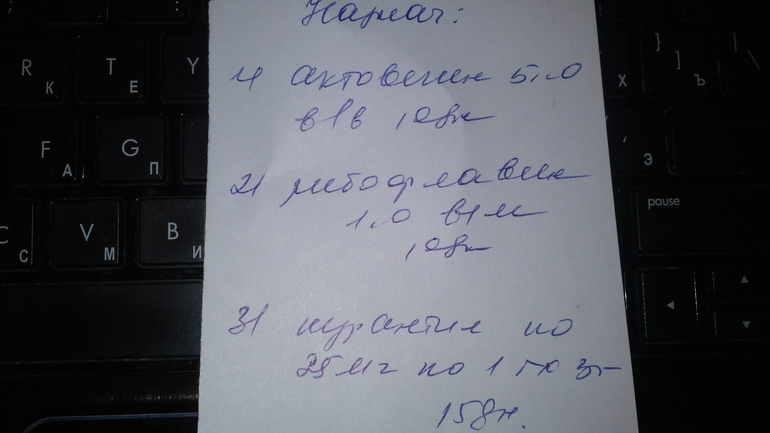 Назнач:
1) актовегин 5,0
в/в 10дн
2) рибофлавин
1,0 в/м
10дн
3) курантил по
25мг по 1 т х 3р
15дн.
R
К
T
Е
Y
}
]
Х
Ъ
\
F
А
G
П
Э
pause
C
С
V
М
B
И